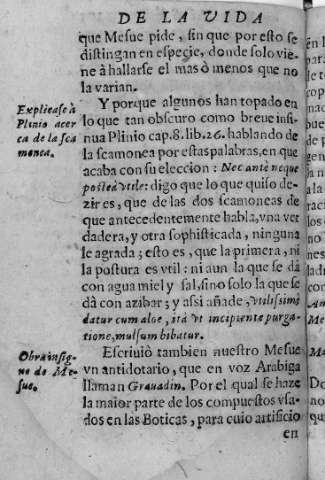 DE LA VIDA
que Mesue pide, sin que por esto se
distingan en especie, donde solo vie-
ne à hallarse el mas ò menos que no
la varian.
Explicase à
Plinio acer
ca de la sca
monea.
Y porque algunos han topado en
lo que tan obscuro como breue insi-
nua Plinio cap. 8. lib. 26. hablando de
la scamonea por estas palabras, en que
acaba con su eleccion: Nec antè neque
posteà vtile: digo que lo que quiso de-
zir es, que de las dos scamoneas de
que antecedentemente habla, vna ver
dadera, y otra sophisticada, ninguna
le agrada; esto es, que la primera, ni
la postura es vtil: ni aun la que se dà
con agua miel y sal, sino solo la que se
dà con azibar; y assi añade, vtilissimè
datur cum aloe, ità vt incipiente purga-
tione, mulsum bibatur.
Obra insig
ne de Me-
sue.
Escriuiò tambien nuestro Mesue
vn antidotario, que en voz Arabiga
llaman Grauadin. Por el qual se haze
la maior parte de los compuestos vsa-
dos en las Boticas, para cuio artificio
en